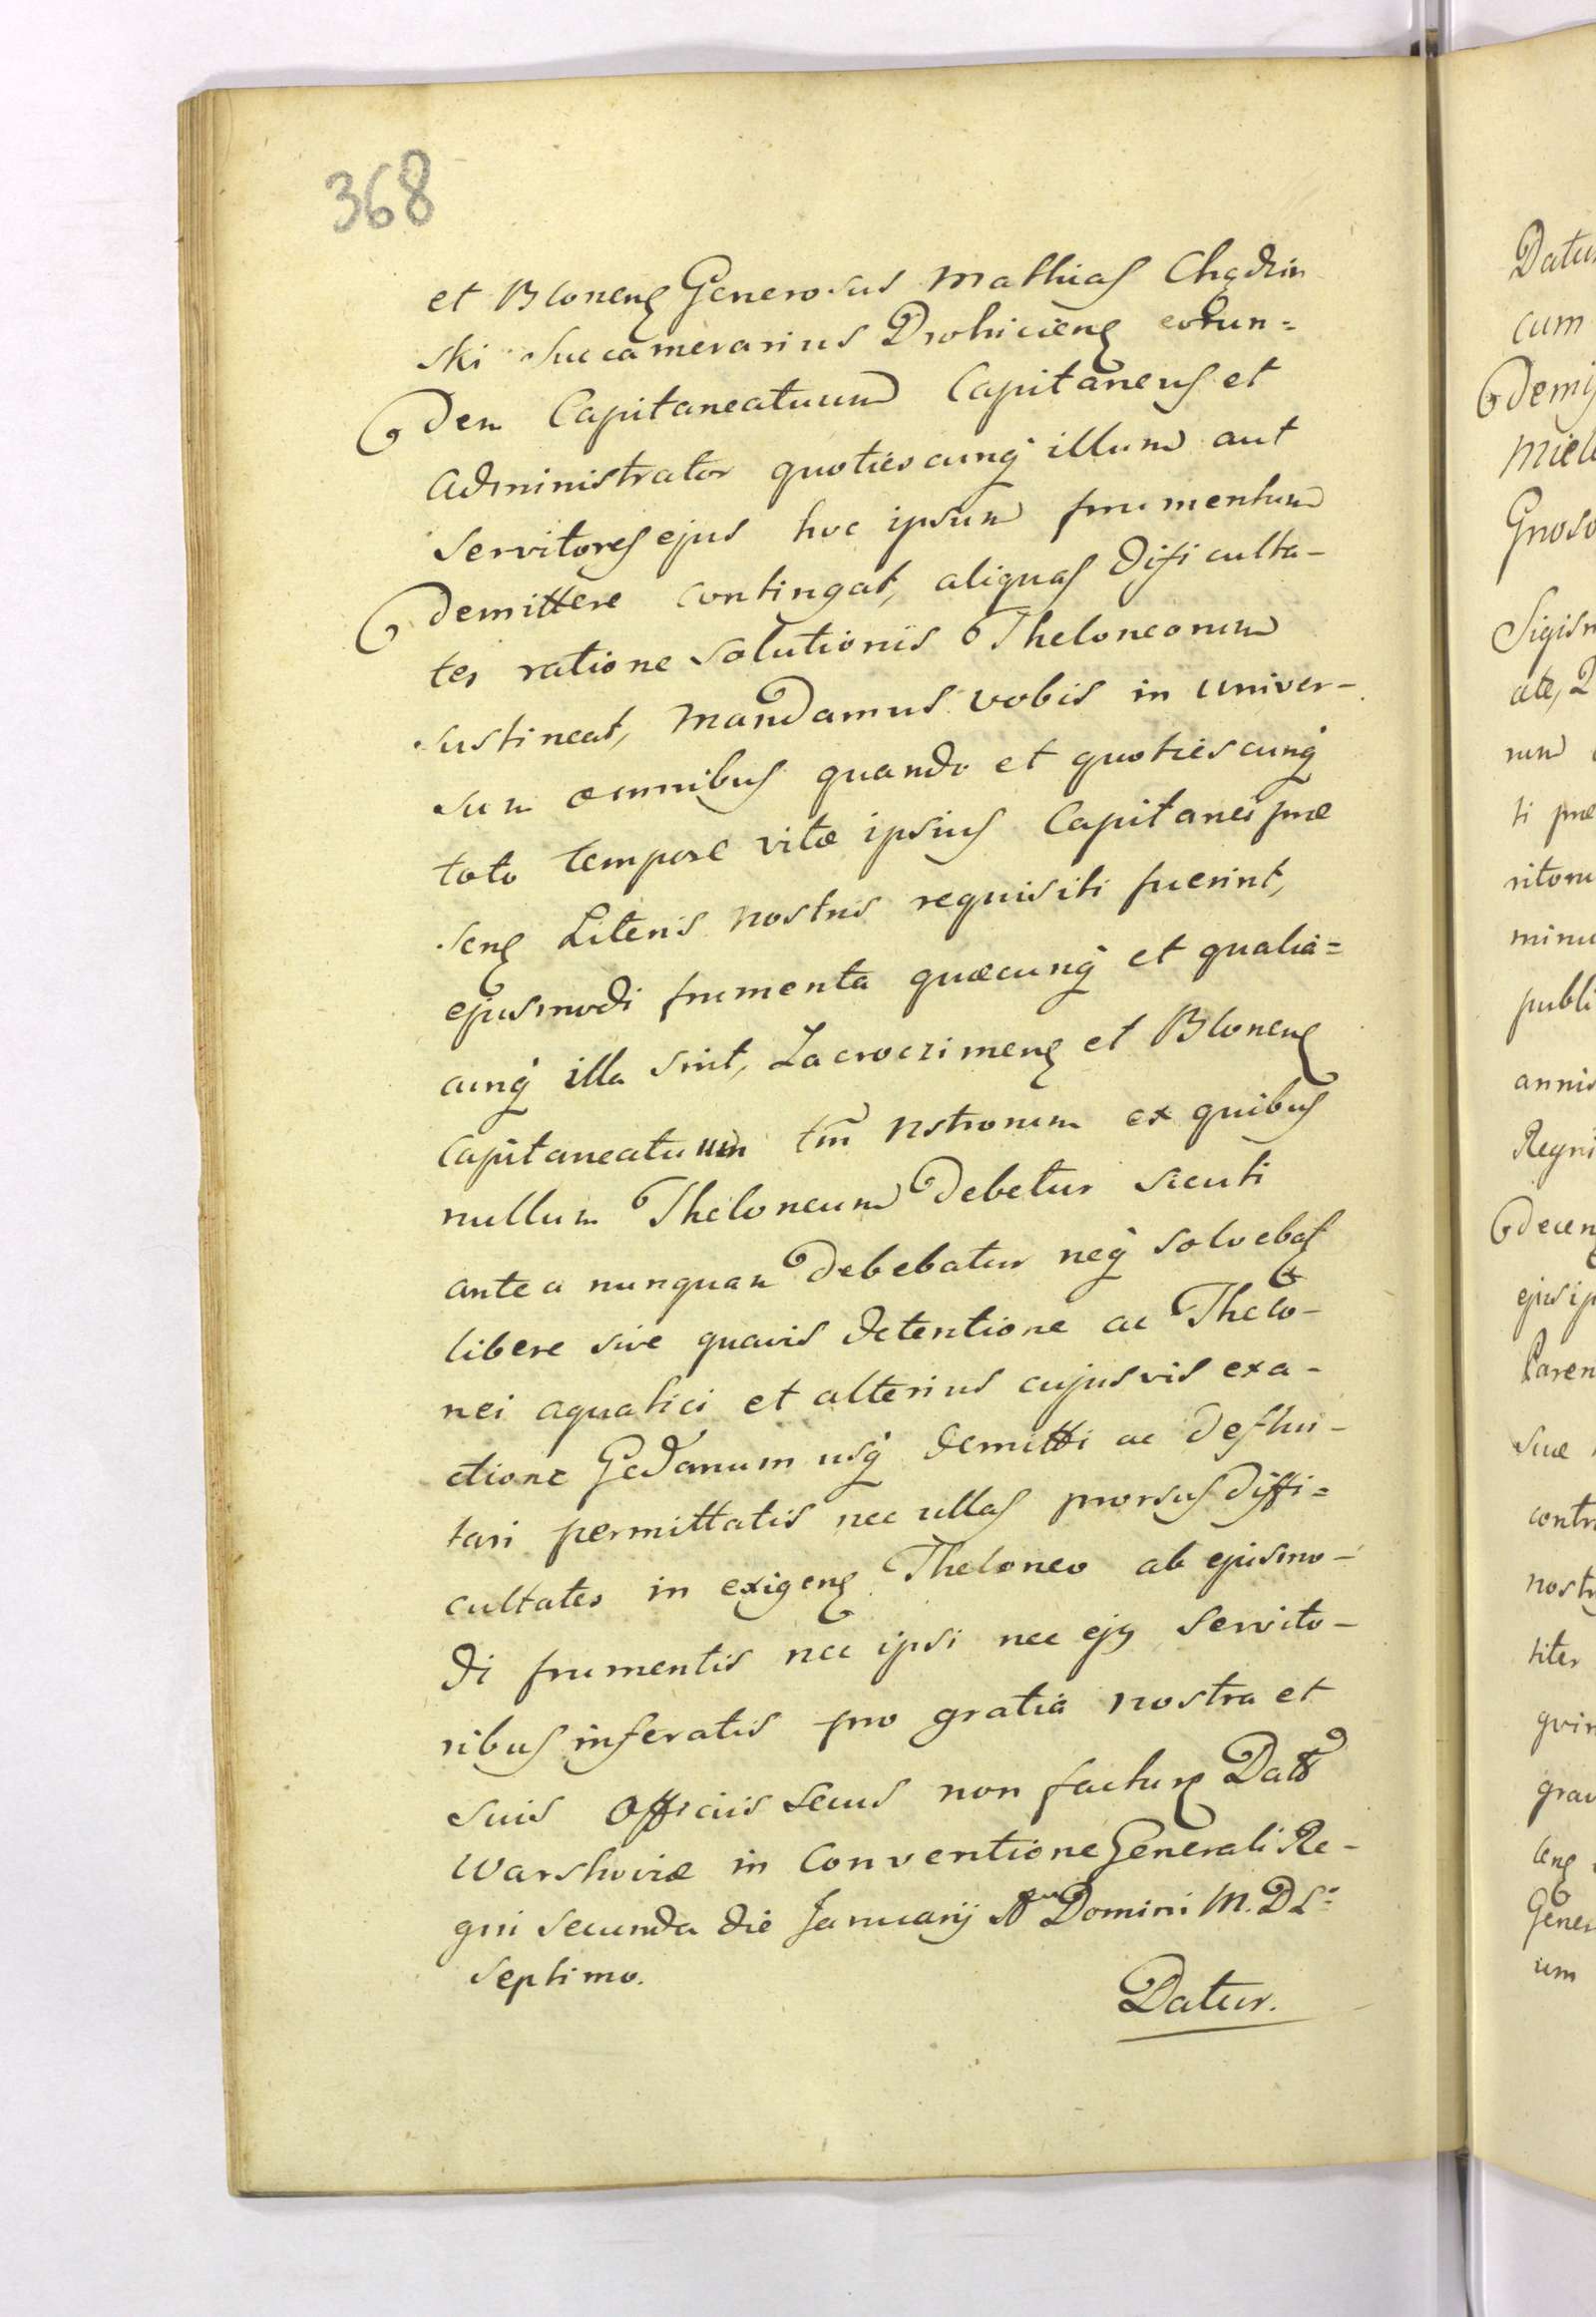 368
et Bloneng Generosus Mathias Chądzin
ski Succamerarius Drohicieng eorun=
dem Capitaneatuum Capitaneus et
Administrator quotiescunq illum aut
Servitores ejus hoc ipsum frumentum
demittere contingat, aliquas dificulta-
tes ratione solutionis Theloneorum
sustineat, Mandamus vobis in univer-
sum omnibus quando et quotiescunq
toto tempore vitæ ipsius Capitanei præ
seng Literis nostris requisiti fuerint,
ejusmodi frumenta quæcunq et qualia=
cunq illa sint, Zacroczimeng et Bloneng
Capitaneatuum tm̃ nstrorum ex quibus
nullum Theloneum debetur sicuti
antea nunquam debebatur neq solvebat
libere sive quavis detentione ac Thelo-
nei aquatici et alterius cujusvis exa-
ctione Gedanum usq demitti ac deflui-
tari permittatis nec ullas prorsus diffi=
cultates in exigeng Theloneo ab ejusmo-
di frumentis nec ipsi nec ejg Servito-
ribus inferatis pro gratia nostra et
suis officiis secus non facturg Datt
Warshoviæ in Conventione Generali Re-
gni secunda die Januarij Domini M.DL:
septimo.
Datur.
Datu
cum
demi
Miel
Gnoso
Sigism
ate,
num
ti præ
ritoru
minu
publi
annis
Regni
decen
ejus ip
Paren
suæ
contr
nostr
titer
qvin
grav
leng
Gener
um